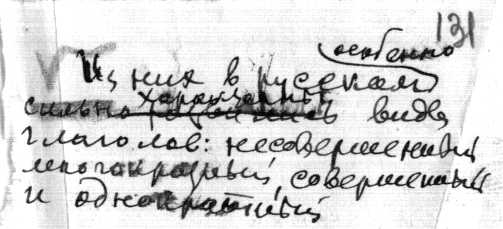 131
особенно
Из них в русском
характерны
сильно виды
глаголов: несовершенный
многократный, совершенный
и однократный